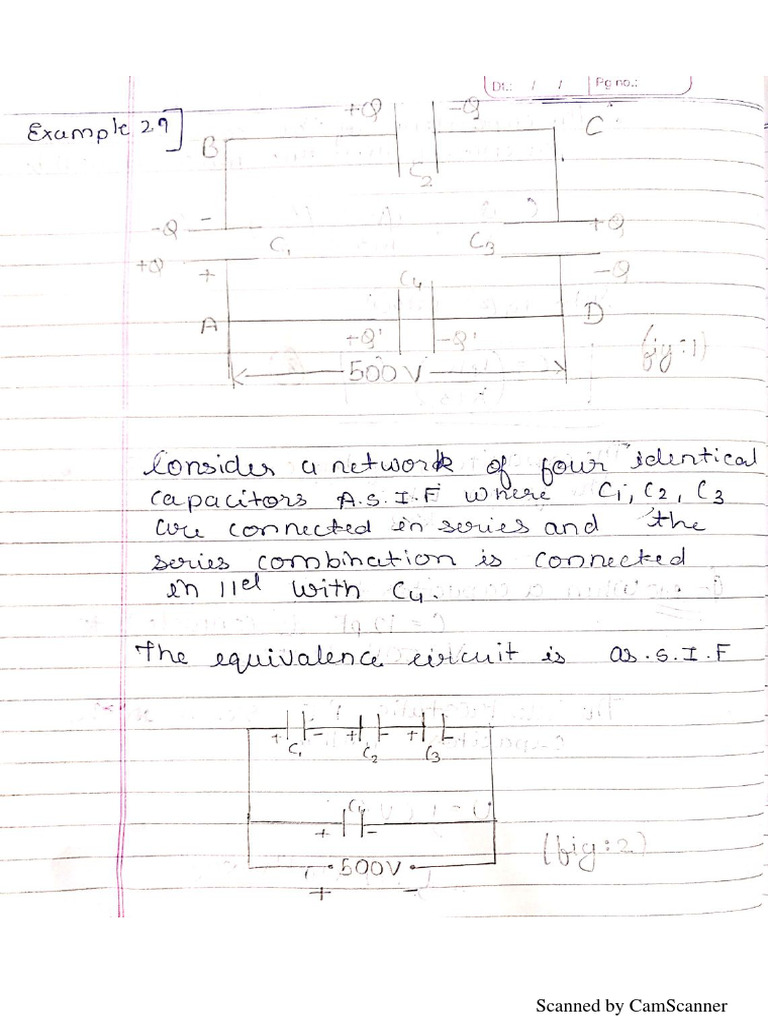 Dt.: / / Pg no.:
Example 29]
+Q -Q
B C
C2
-Q - +Q
C1 C3
+Q + -Q
C4
A D
+Q' -Q'
500V
(fig:1)
Consider a network of four identical
capacitors A.S.I.F where C1, C2, C3
are connected in series and the
series combination is connected
in 11el with C4.
The equivalence circuit is as.S.I.F
+ - + - + -
C1 C2 C3
C4
+ -
500V
(fig:2)
+ -
Scanned by CamScanner